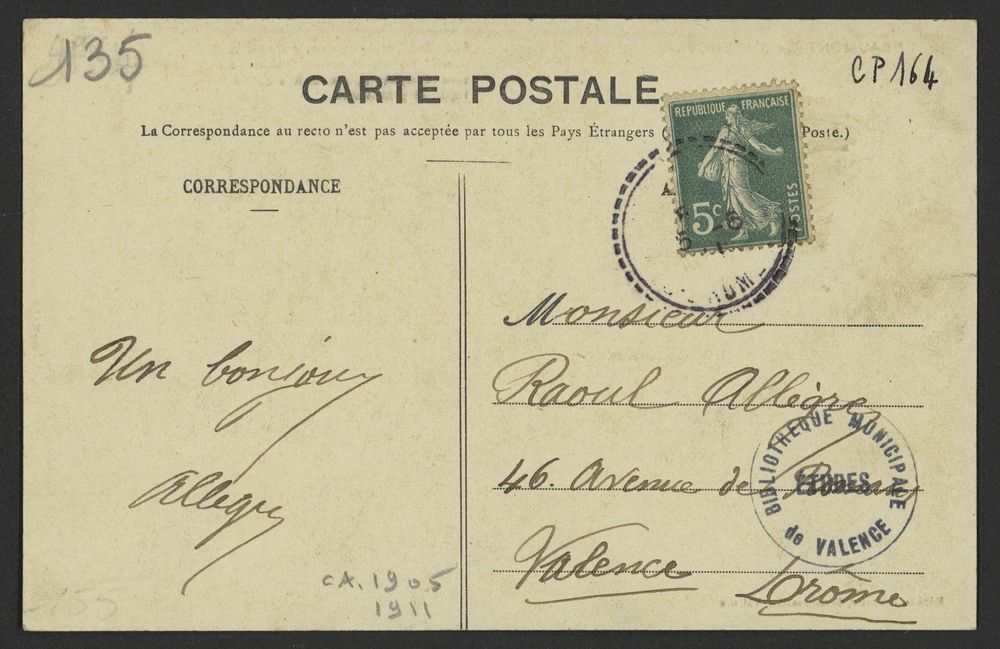 135
CP 164
CARTE POSTALE
La Correspondance au recto n'est pas acceptée par tous les Pays Étrangers ( Poste.)
CORRESPONDANCE
REPUBLIQUE FRANÇAISE
5c
POSTES
Monsieur
Raoul Allègre
46. Avenue de Romans
Valence Drôme
Un bonjour
Allègre
BIBLIOTHEQUE MUNICIPALE
ETUDES
de VALENCE
CA. 1905
1911